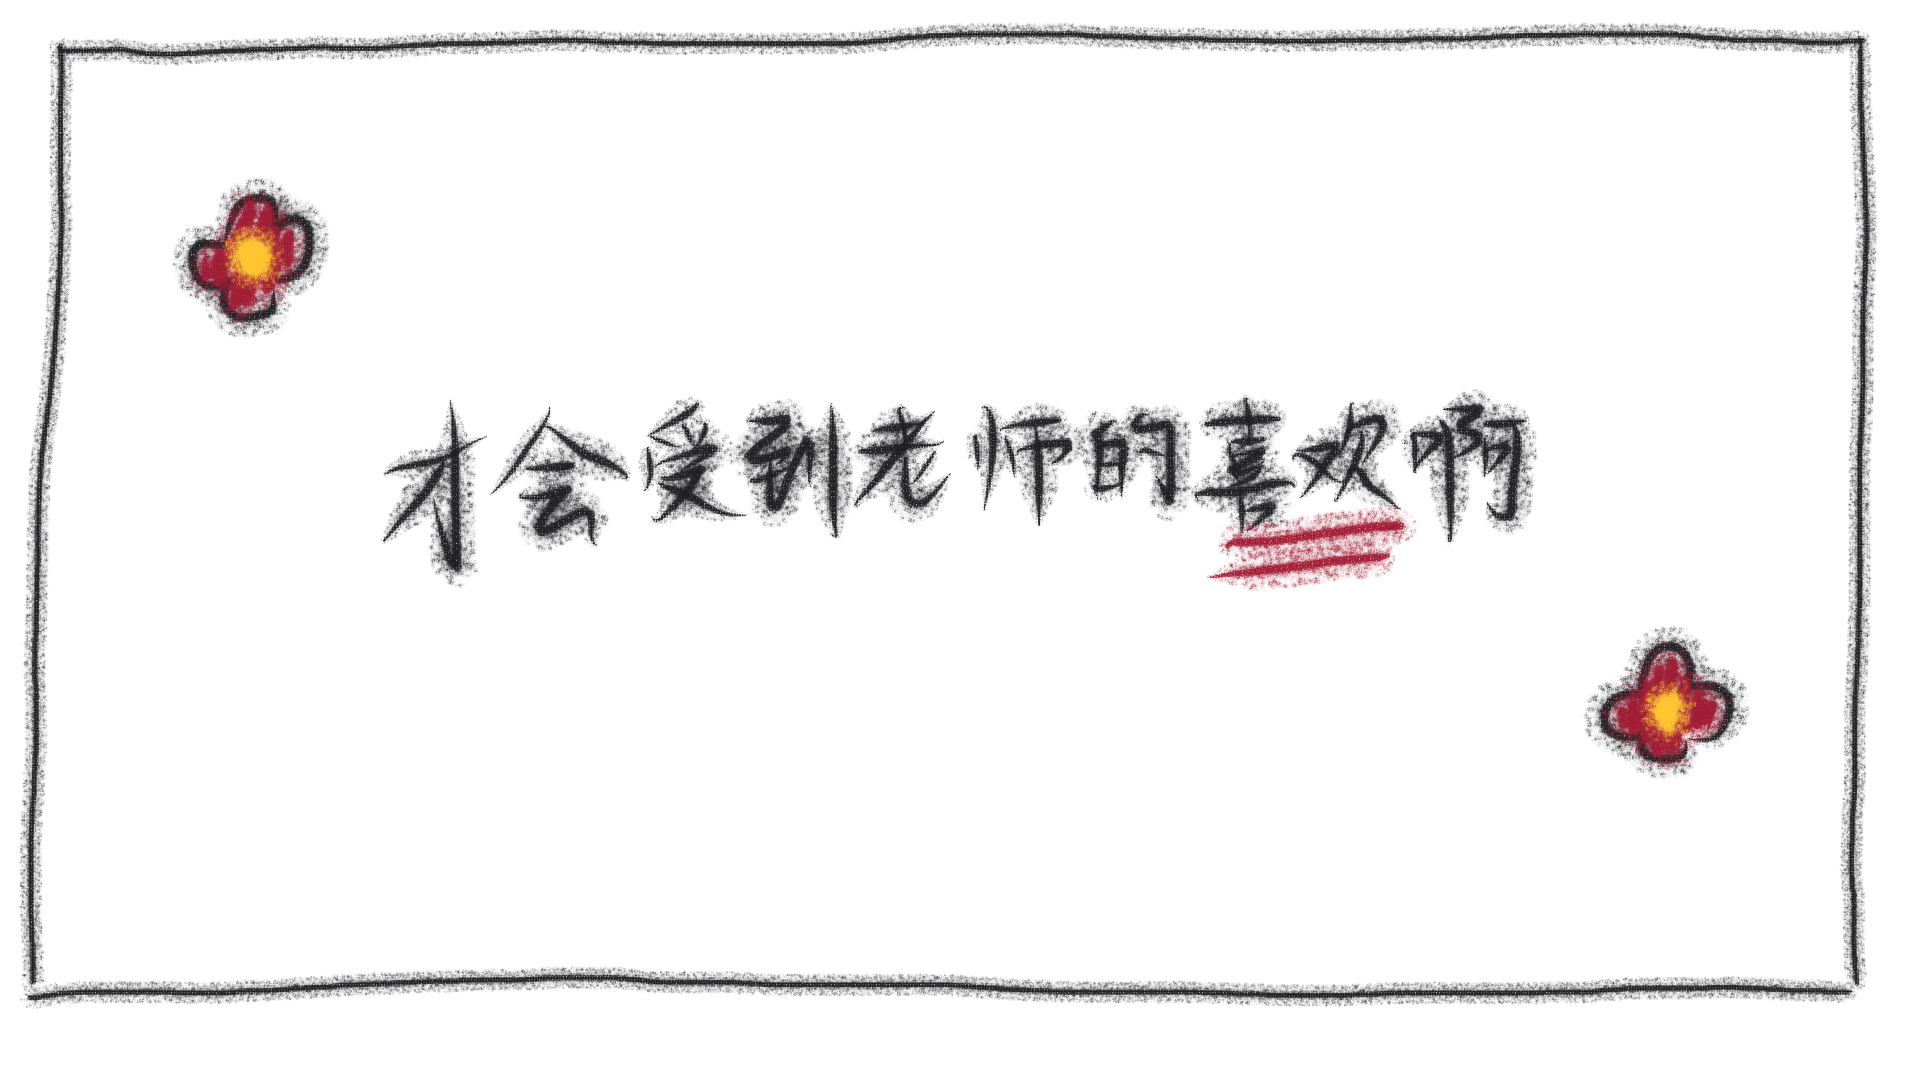 才会受到老师的喜欢啊